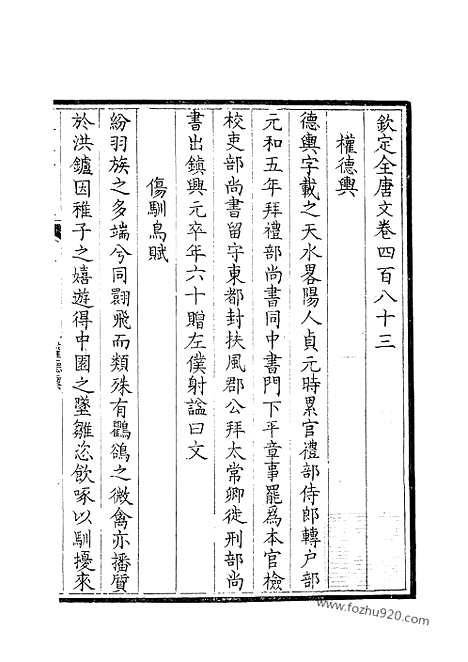 欽定全唐文卷四百八十三
權德輿
德輿字載之天水畧陽人貞元時累官禮部侍郎轉户部
元和五年拜禮部尚書同中書門下平章事罷爲本官檢
校吏部尚書留守東都封扶風郡公拜太常卿徙刑部尚
書出鎮興元卒年六十贈左僕射諡曰文
傷馴鳥賦
紛羽族之多端兮同翾飛而類殊有鸜鵒之微禽亦播質
於洪鑪因稚子之嬉遊得中園之墜雛恣飲啄以馴擾來
www.fozhu920.com